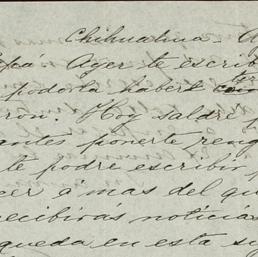 Chihuahua - A
Ayer te escrib
podorla haberl
ron. Hoy saldré
antes ponerte reng
te podre escribir
cer á mas del qu
ecibirás noticias
queda en esta s